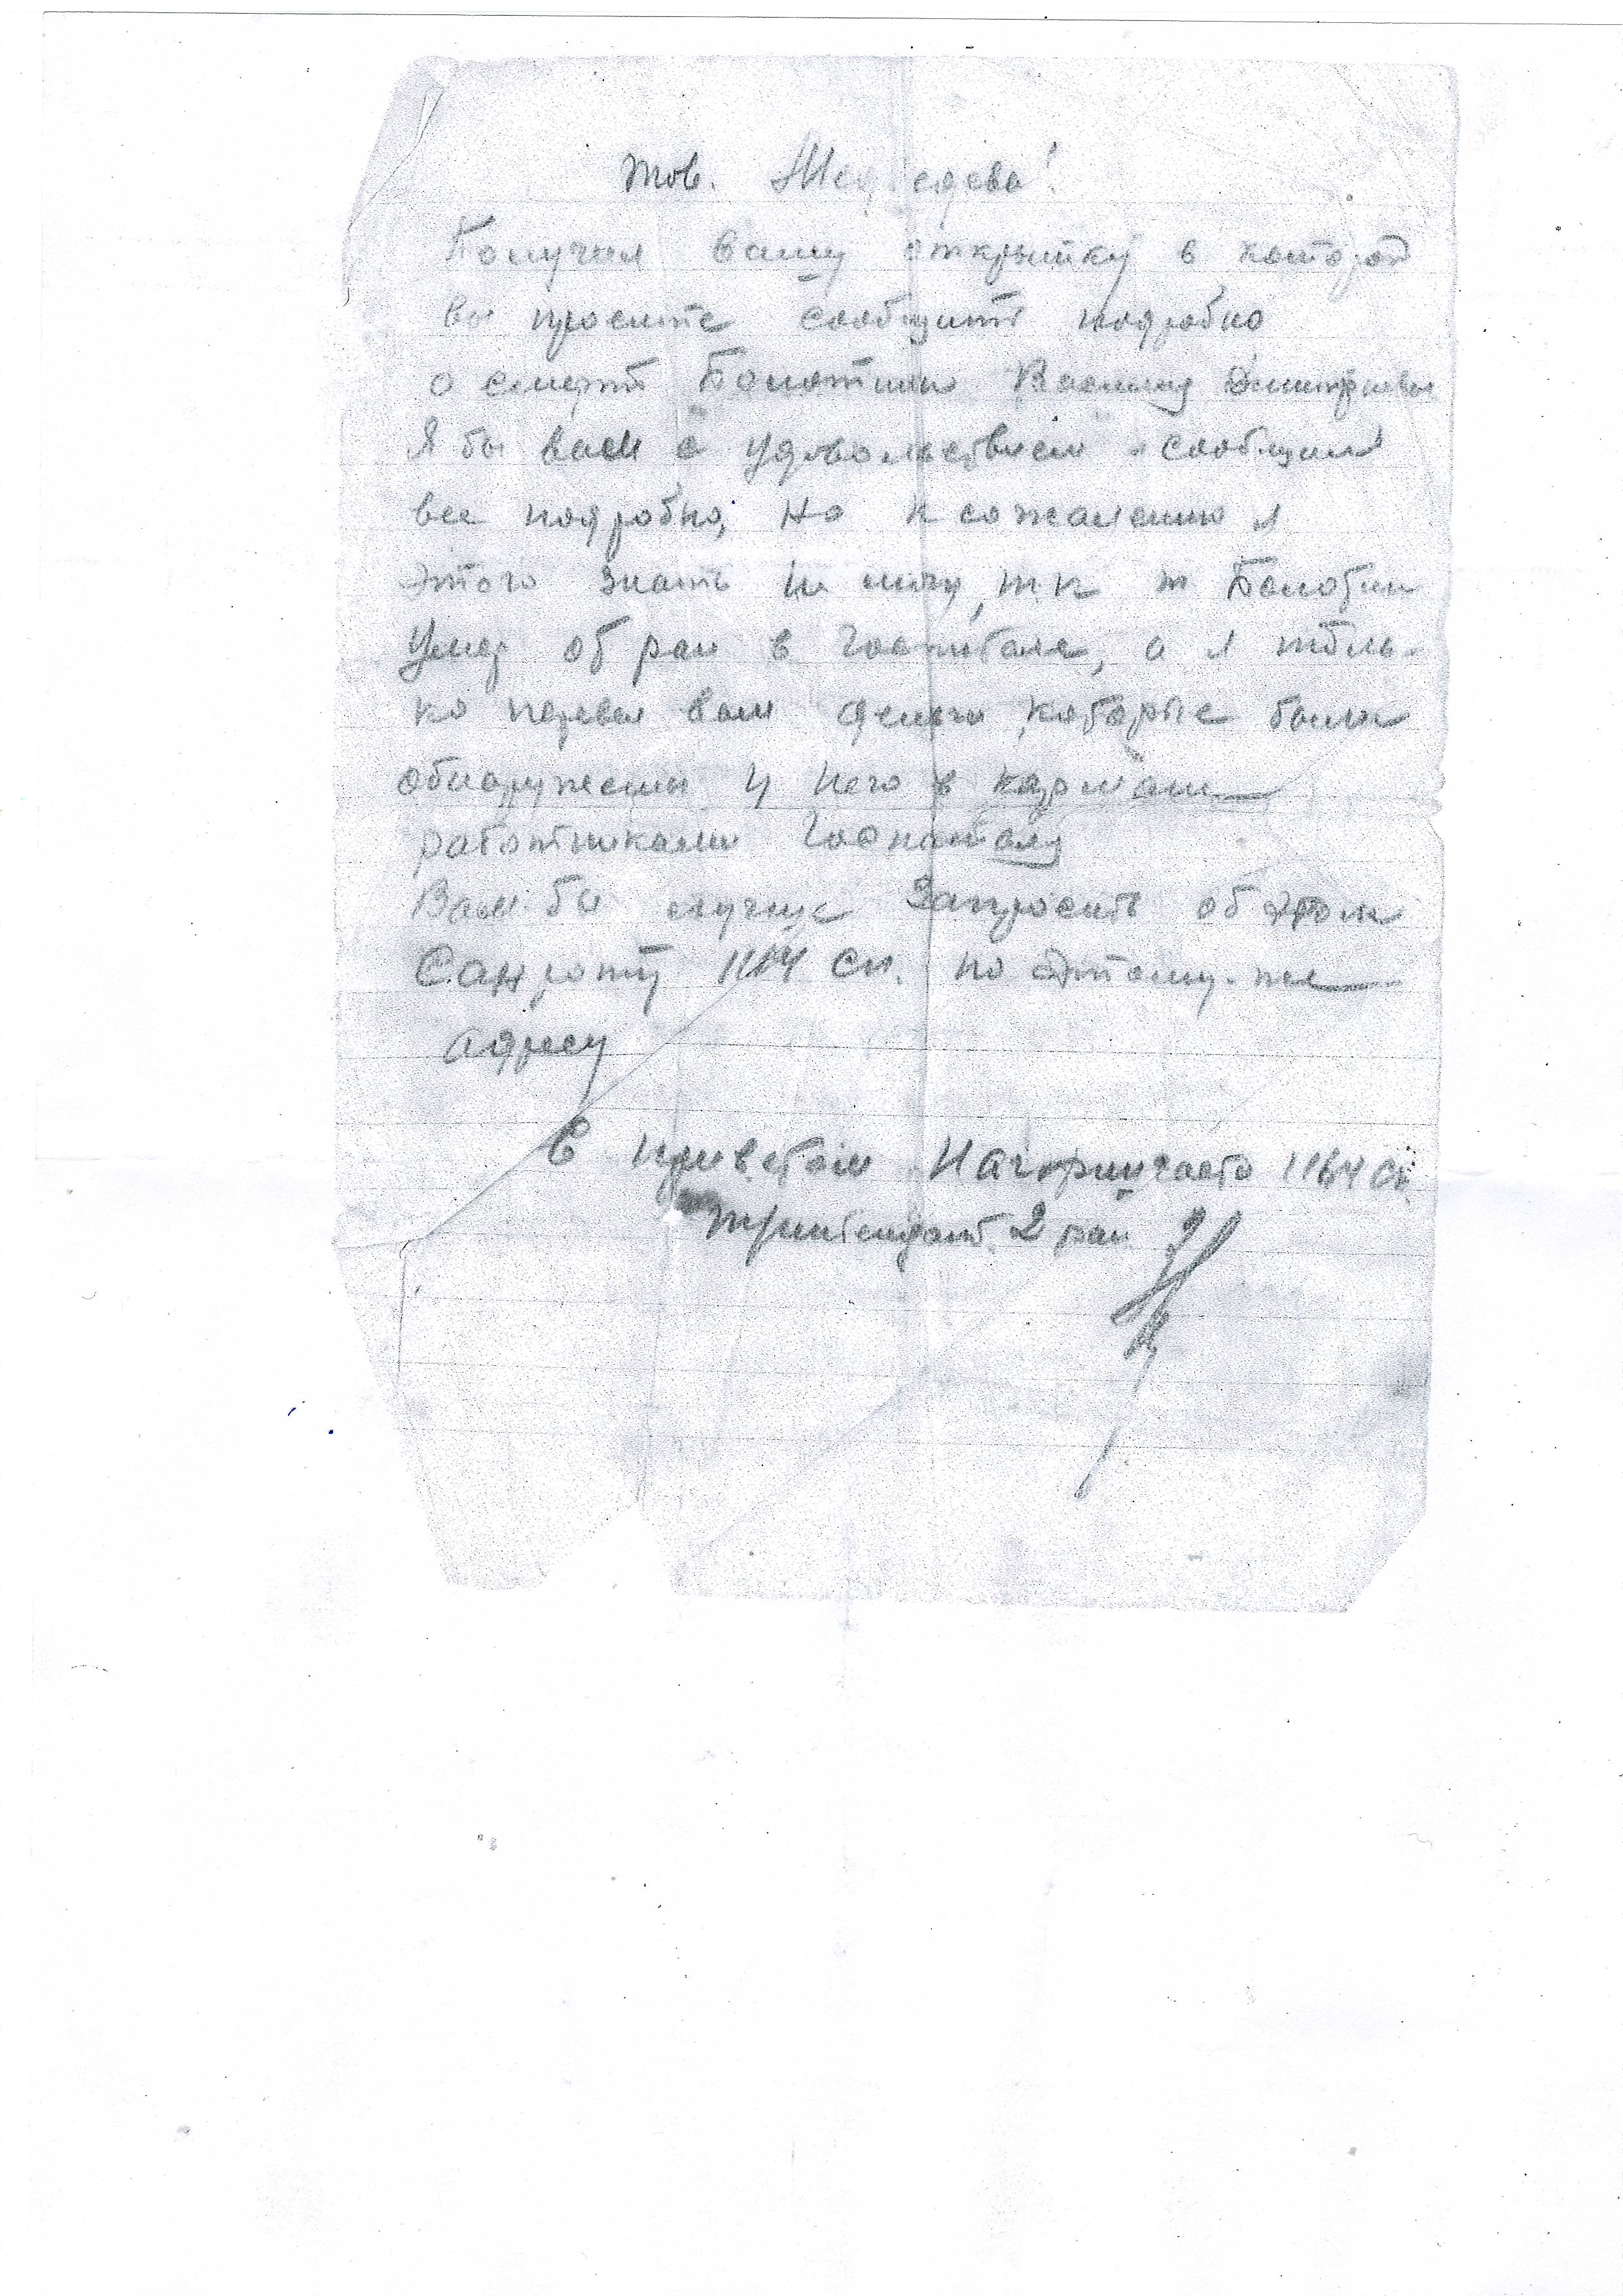 Тов. Медведева!
Получил вашу открытку в которой
вы просите сообщить подробно
о смерти Болотина Василия Дмитриевич
Я бы вам с удовольствием сообщил
все подробно, но к сожалению я
этого знать не могу, т.к т Болотин
умер от ран в госпитале, а я толь-
ко перевел вам деньги, которые были
обнаружены у него в кармане
работниками госпиталя
Вам бы лучше запросить об этом
Санроту 1164 сп. по этому же
адресу
С приветом Начфинчасти 1164 сп
Интендант 2 ран